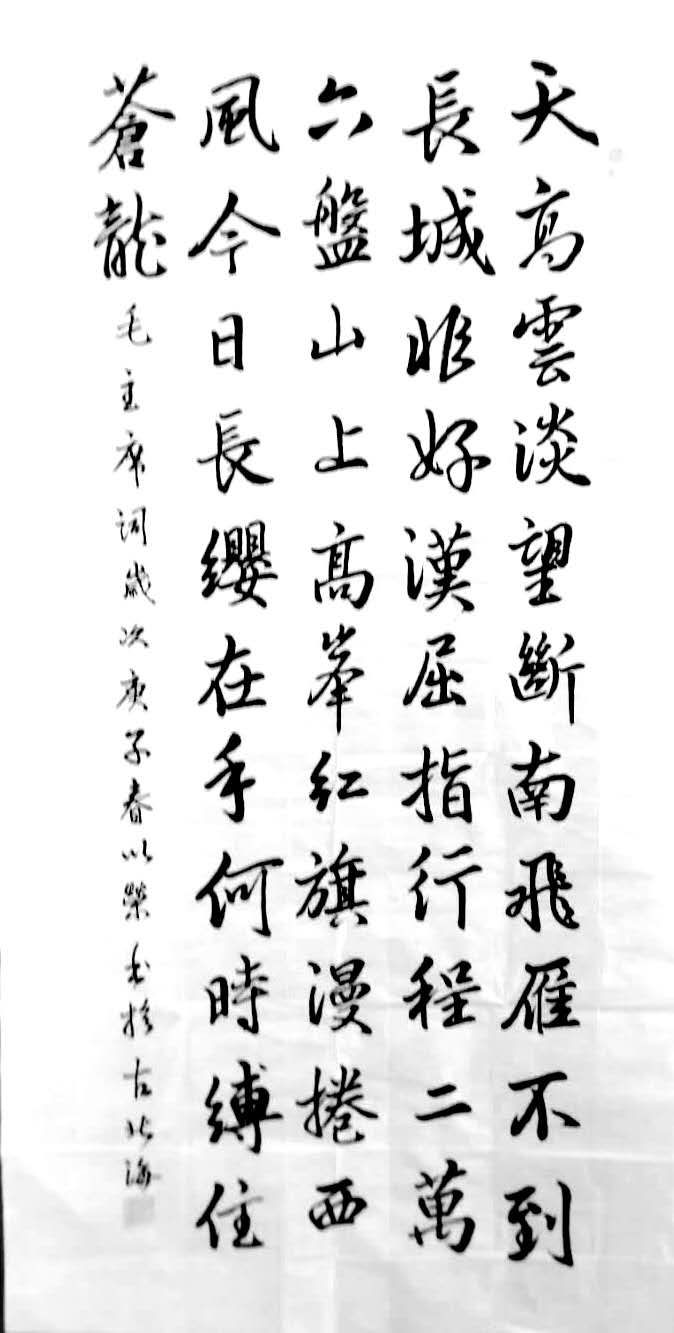 天高雲淡望斷南飛雁不到
長城非好漢屈指行程二萬
六盤山上高峯紅旗漫捲西
風今日長纓在手何時縛住
蒼龍
毛主席詞歲次庚子春以榮書於古北海